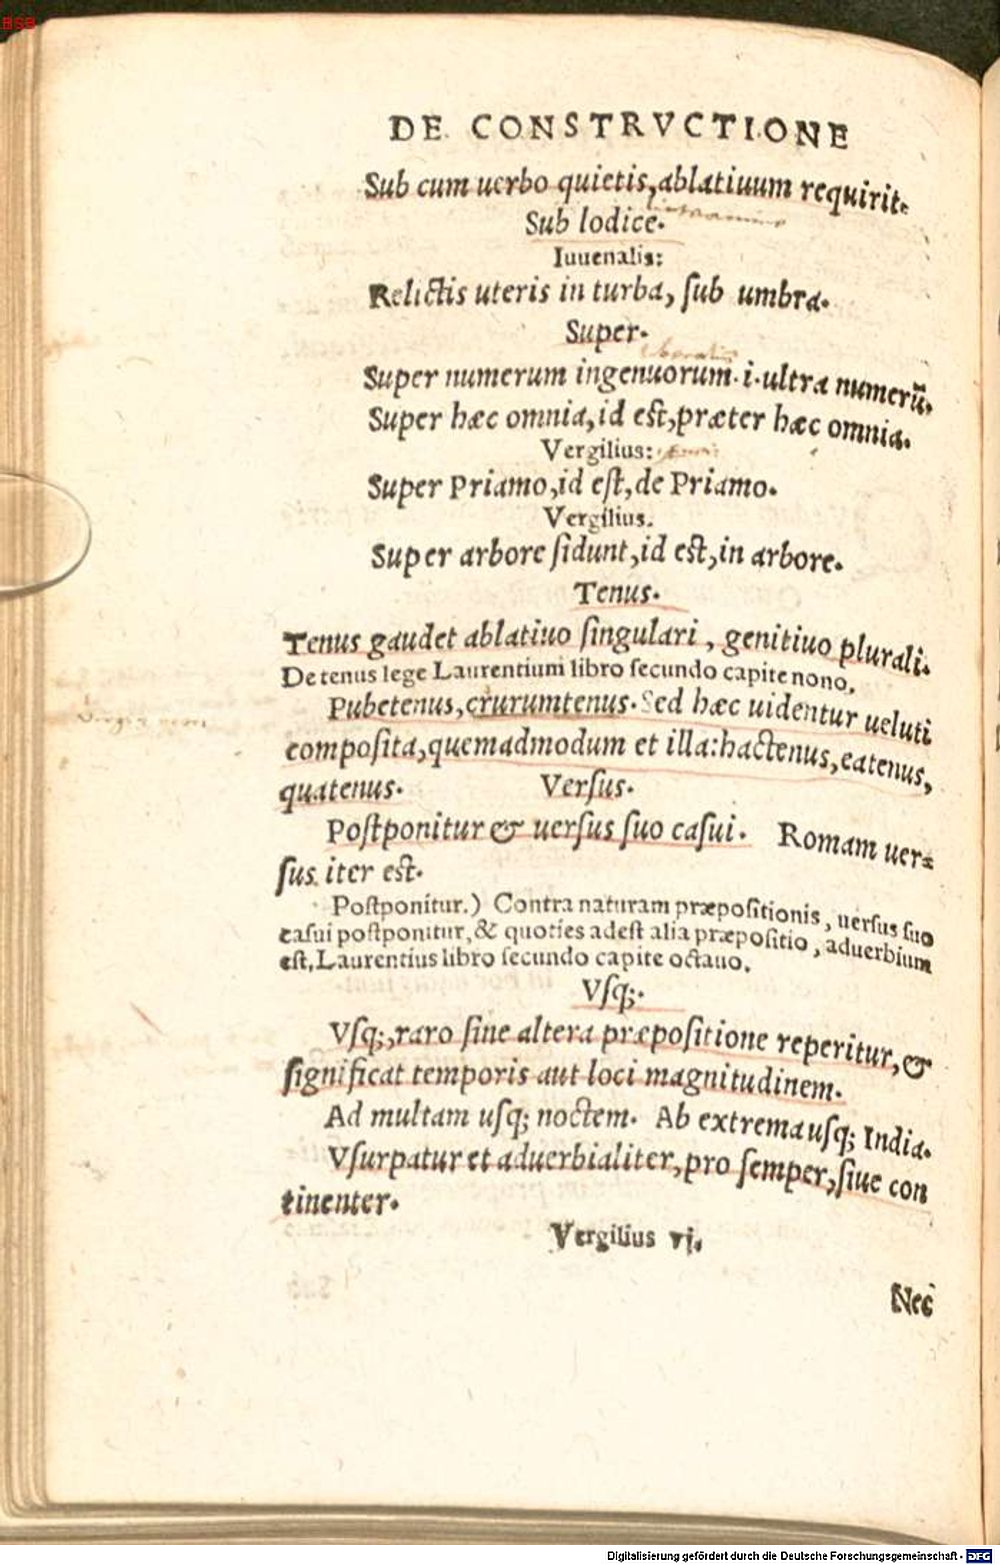 BSB
DE CONSTRVCTIONE
Sub cum uerbo quietis, ablatiuum requirit.
Sub lodice.
Iuuenalis:
Relictis uteris in turba, ſub umbra.
Super.
Super numerum ingenuorum.i.ultra numerū.
Super hæc omnia, id eſt, præter hæc omnia.
Vergilius:
Super Priamo, id eſt, de Priamo.
Vergilius.
Super arbore ſidunt, id eſt, in arbore.
Tenus.
Tenus gaudet ablatiuo ſingulari, genitiuo plurali.
De tenus lege Laurentium libro ſecundo capite nono.
Pubetenus, crurumtenus. Sed hæc uidentur ueluti
compoſita, quemadmodum et illa: hactenus, eatenus,
quatenus. Verſus.
Poſtponitur & uerſus ſuo caſui. Romam uer=
ſus iter eſt.
Poſtponitur.) Contra naturam præpoſitionis, uerſus ſuo
caſui poſtponitur, & quoties adeſt alia præpoſitio, aduerbium
eſt, Laurentius libro ſecundo capite octauo.
Vſq;.
Vſq;, raro ſine altera præpoſitione reperitur, &
ſignificat temporis aut loci magnitudinem.
Ad multam uſq; noctem. Ab extrema uſq; India.
Vſurpatur et aduerbialiter, pro ſemper, ſiue con
tinenter.
Vergilius vi.
Nec
Digitalisierung gefördert durch die Deutsche Forschungsgemeinschaft - DFG